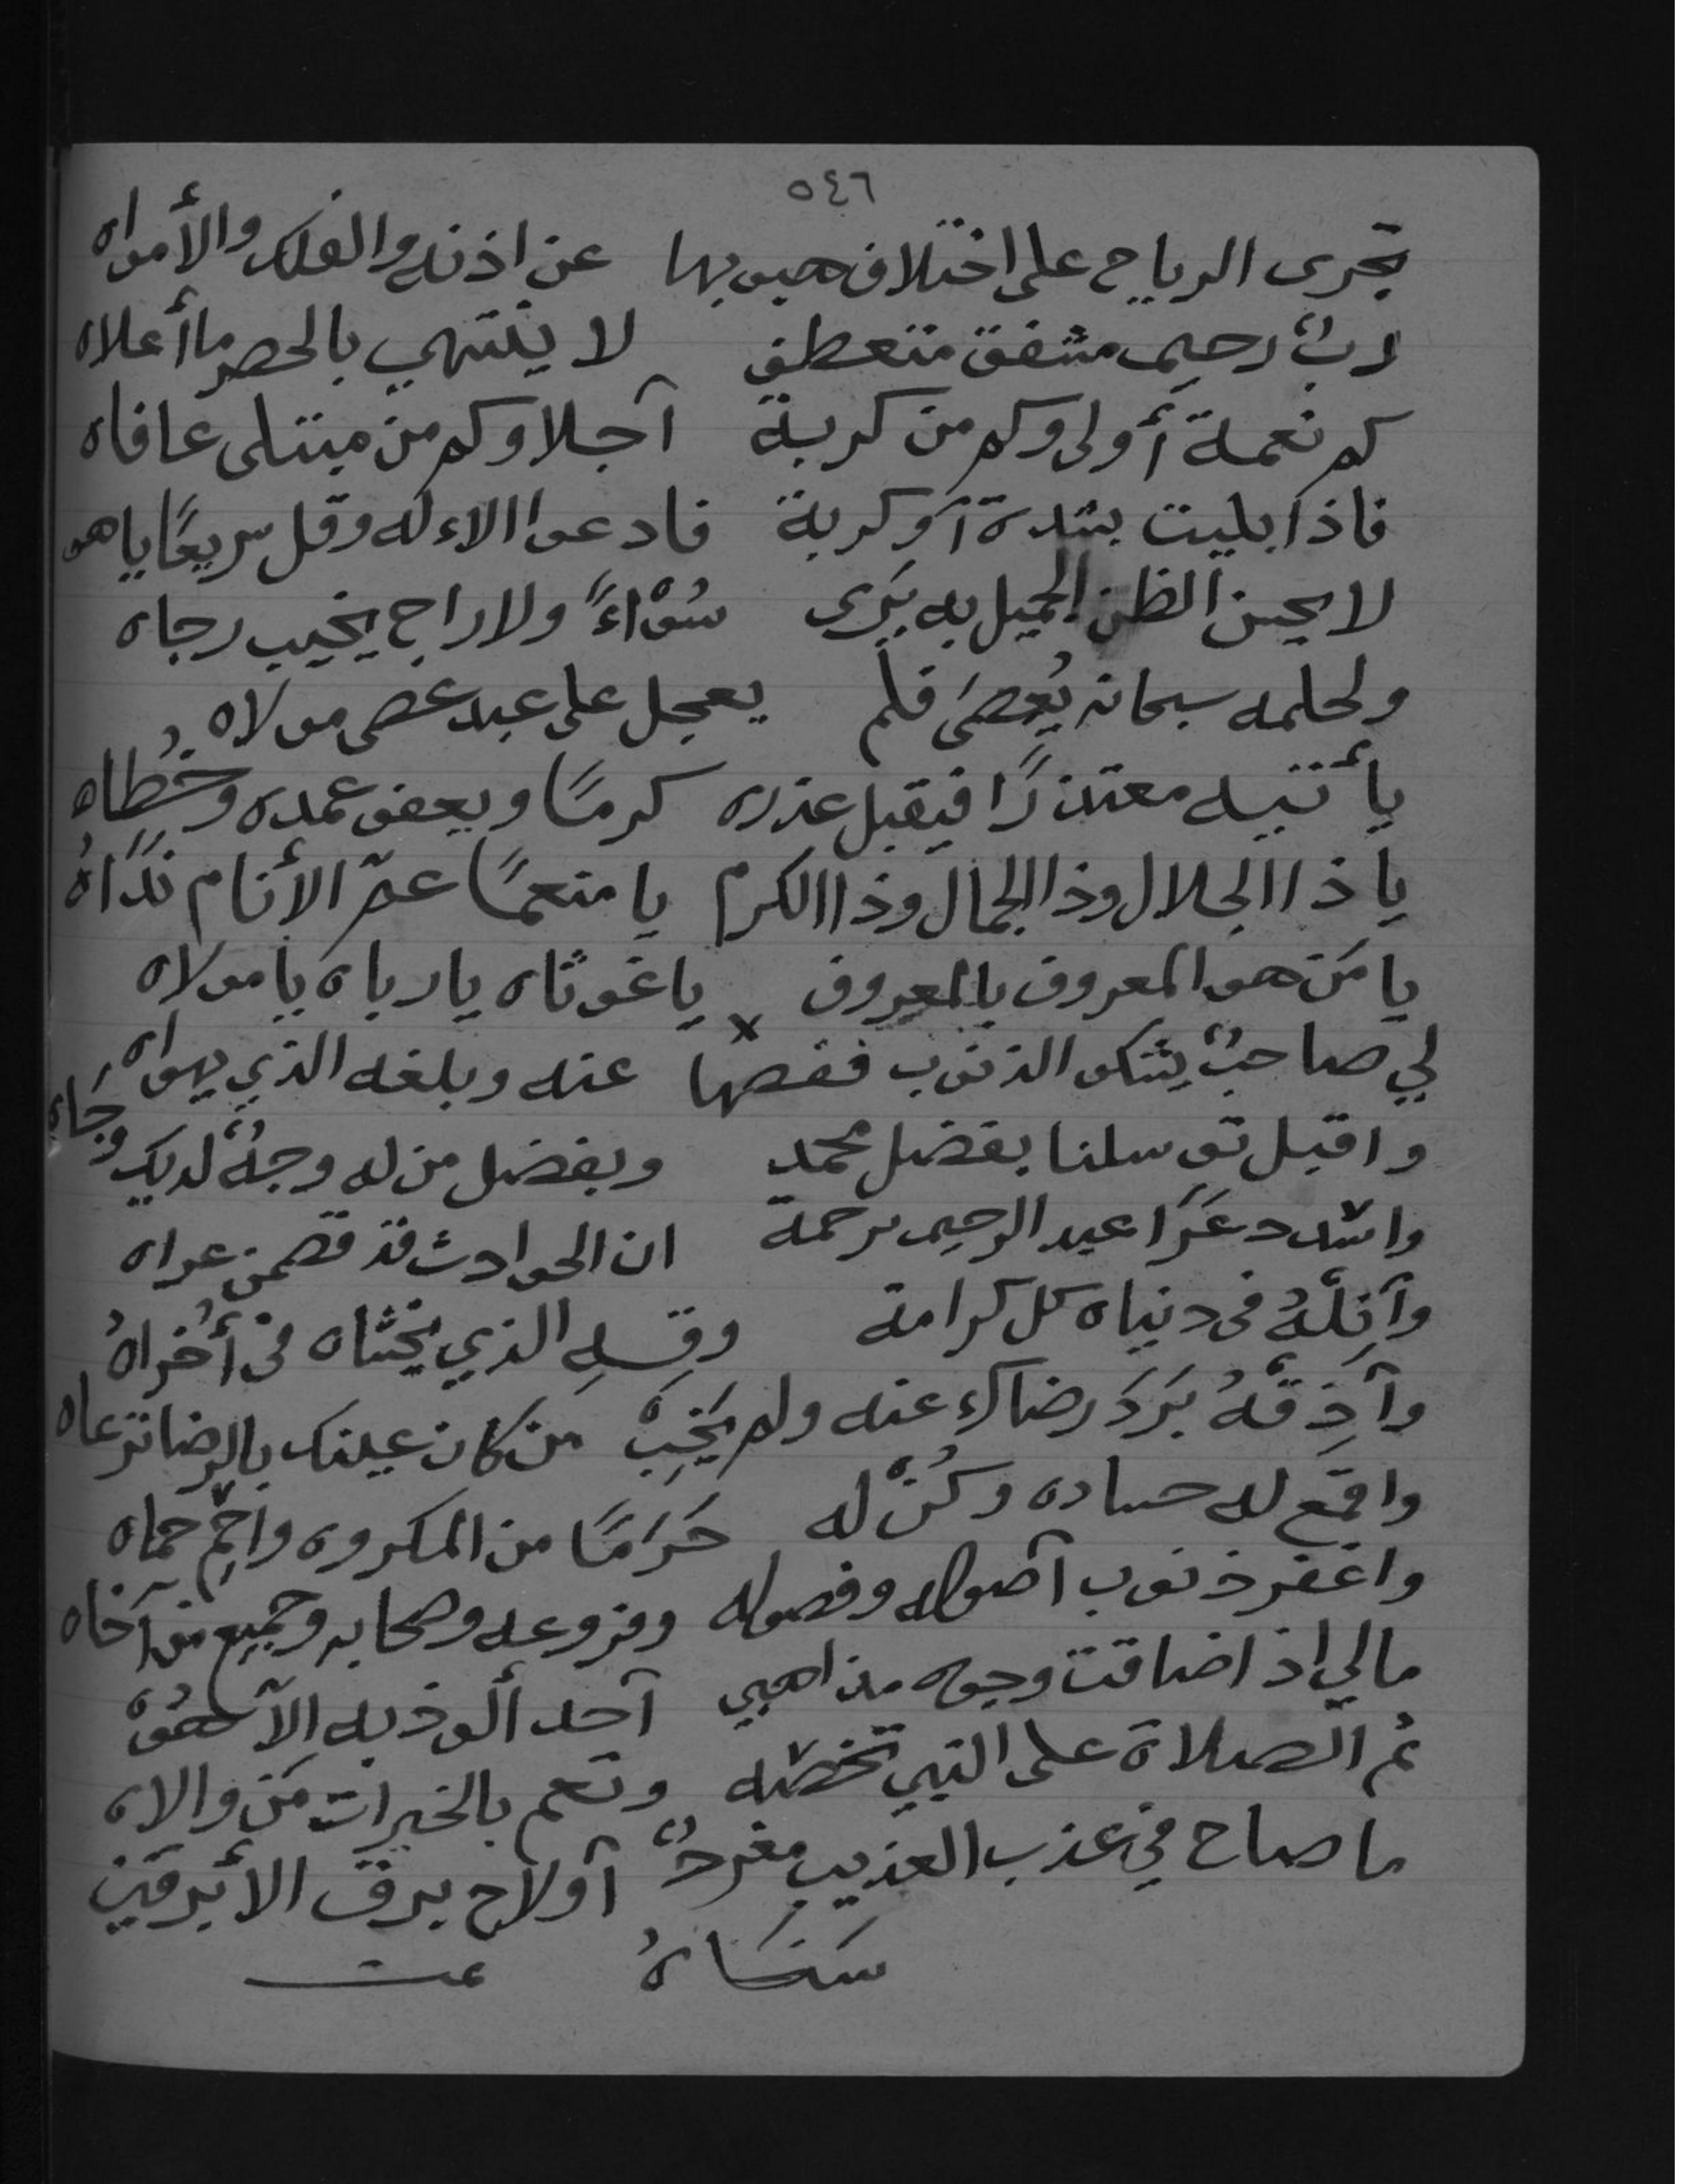 ٥٤٦
تجرى الرياح على اختلاف هبوبها عن اذنه والفلك والأمواه
ربٌ رحيم مشفق متعطف لا ينتهي بالحصر ما أعلاه
كم نعمة أولى وكم من كربة آجلا وكم من مبتلى عافاه
فاذا بليت بشدة آو كربة فادعوا الاءله وقل سريعًا ياهو
لا يحسن الظن الجميل به يَرَى سُوْاءً ولا راجٍ يخيب رجاه
ولحلمه سبحانه يُعصىَ فلم يعجل على عبد عصى مولاه
يأتيه معتذرًا فيقبل عذره كرمًا ويعفو عمده وخُطاه
يا ذاالجلال وذاالجمال وذاالكرم يا منعمًا عمّ الأنام نَدًاهُ
يا مَن هو المعروف بالمعروف يا غوثاه يا رباه يا مولاه
لي صاحبٌ يشكو الذنوب فقصها عنه وبلغه الذي يهواه
واقبل توسلنا بفضل محمد وبفضل من له وجهٌ لديك وجَاه
واشدد عَرَا عبد الرحيم برحمة ان الحوادث قد قصمن عراه
وآنِلْهُ فى دنياه كل كرامة وقِهِ الذي يخشاه فى أُخراهُ
وآذِقْهُ بَرَدَ رضاك عنه ولم يَخِبْ من كان عينك بالرضا ترعاه
واقمع له حساده وكُنْ له حَرَمًا من المكروه واحْمِ حماه
واغفر ذنوب آصوله وفصوله وفروعه وصحابه وجميع من آخاه
مالي اذا ضاقت وجوه مذاهبي آحد ألوذ به الآ هُوْ
ثم الصلاة على النبي تخصّه وتعم بالخيرات مَن والاه
ما صاح في عذب العذيب مغردٌ آولاح برق الأبرقين
سَنَاهُ تمت